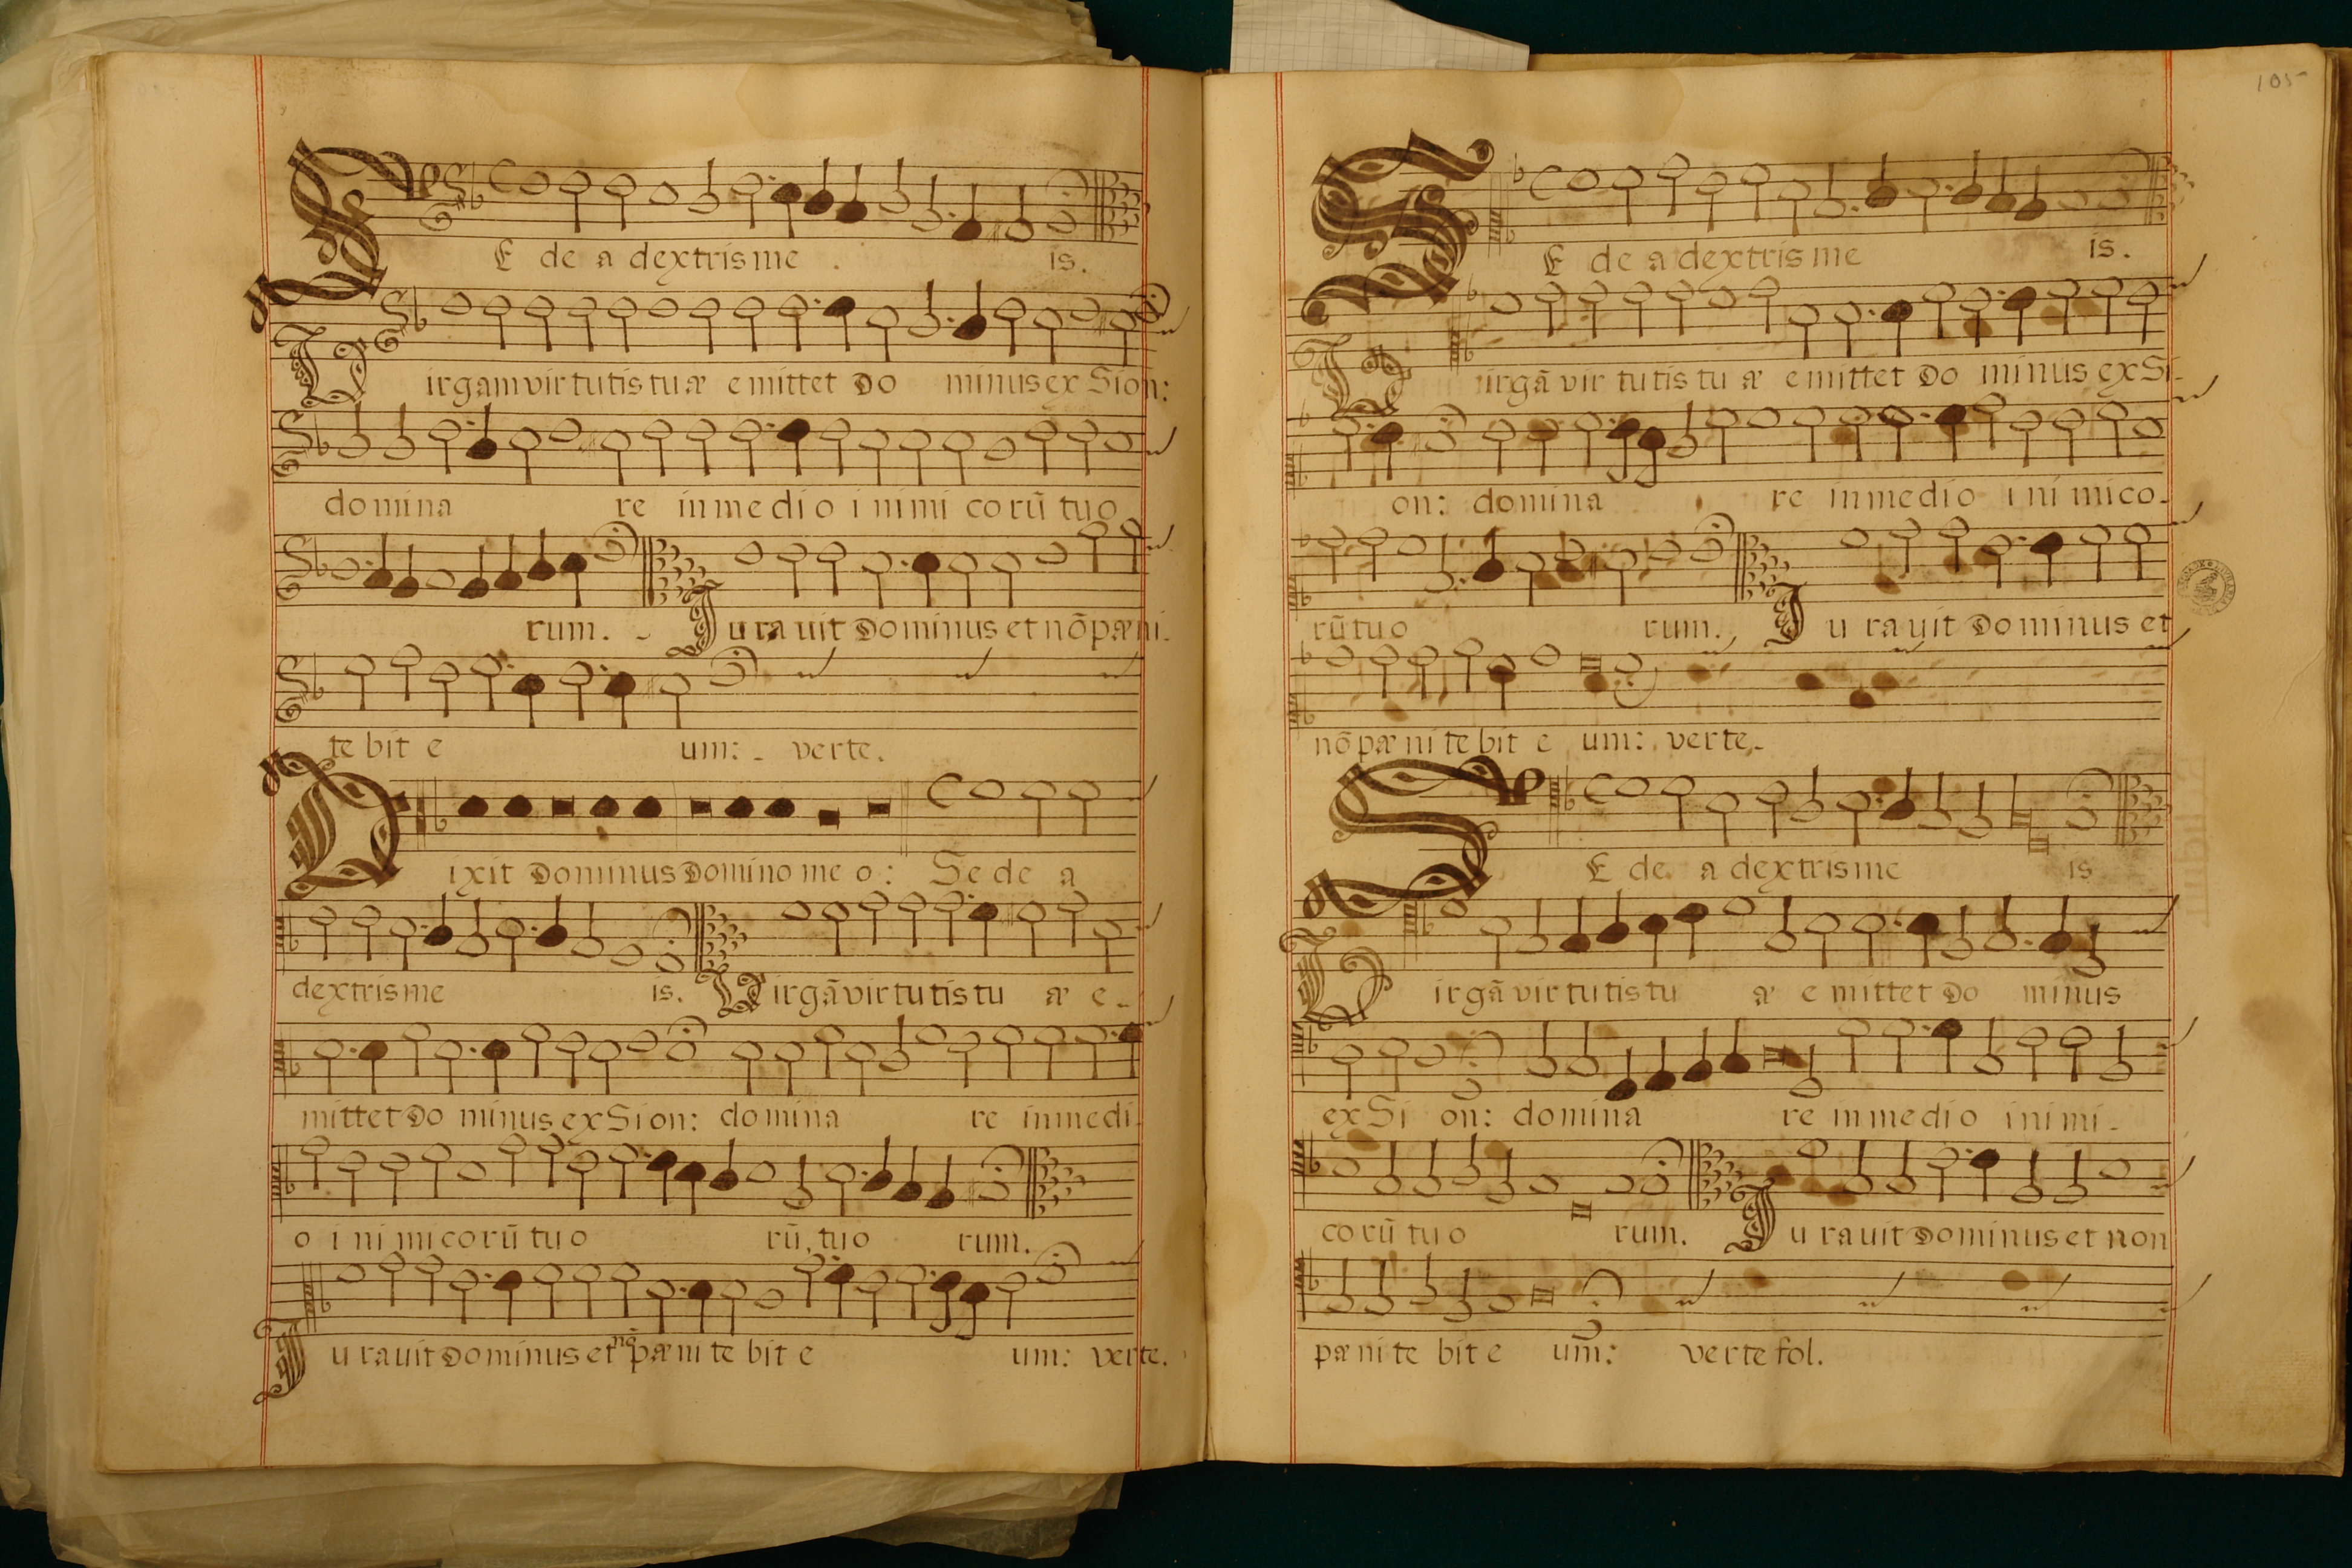 SE de a dextris me is.
Virgam virtutis tuæ emittet Do minus ex Sion:
domina re in medio inimi corũ tuo
rum. Iurauit Dominus et nõ pæni-
tebit e um: verte.
Dixit Dominus Domino meo: Sede a
dextris me is. Virgã virtutis tu æ e-
mittet Do minus ex Sion: domina re in medi-
o inimicorũ tuo rũ, tuo rum.
Iurauit Dominus et nõ pænitebit e um: verte.
105
SE de a dextris me is.
Virgã virtutis tu æ emittet Do minus ex Si-
on: domina re in medio inimico-
rũ tuo rum. Iurauit Dominus et
nõ pænitebit e um: verte.
SE de a dextris me is
Virgã virtutis tu æ emittet Do minus
ex Si on: domina re in medio inimi-
corũ tuo rum. Iurauit Dominus et non
pænitebit e um: verte fol.